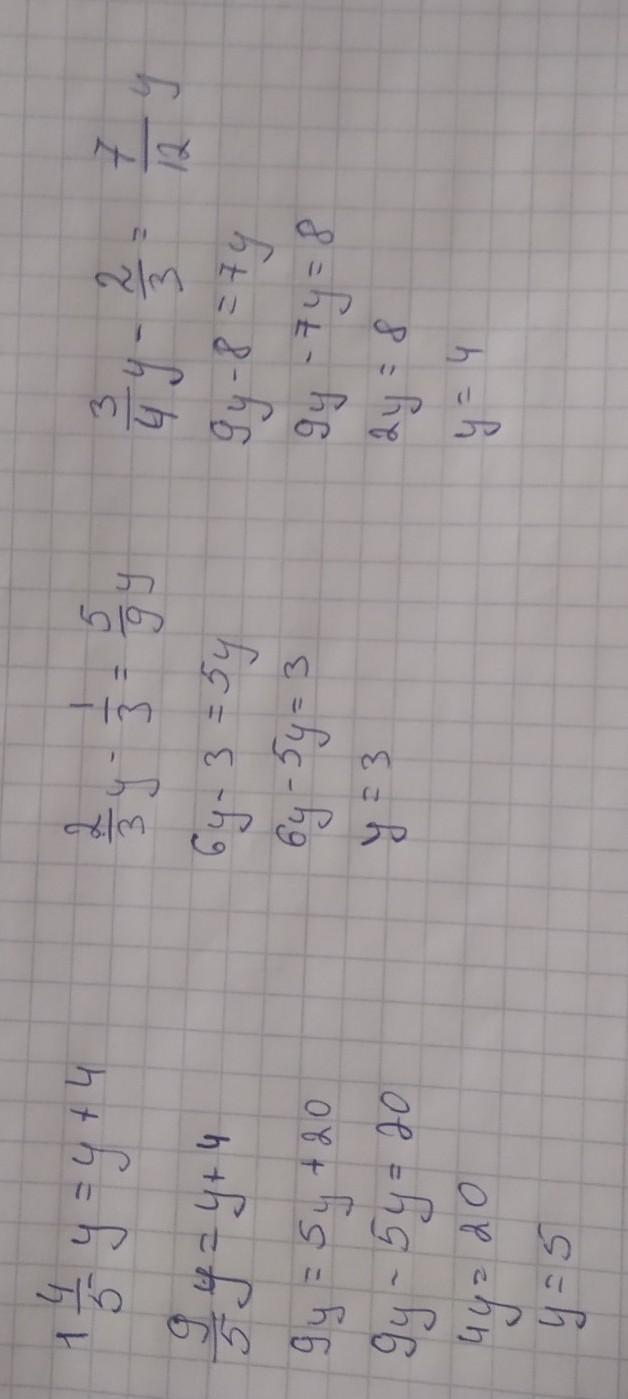 1 4/5 y = y + 4
9/5 y = y + 4
9y = 5y + 20
9y - 5y = 20
4y = 20
y = 5
2/3 y - 1/3 = 5/9 y
6y - 3 = 5y
6y - 5y = 3
y = 3
3/4 y - 2/3 = 7/12 y
9y - 8 = 7y
9y - 7y = 8
2y = 8
y = 4